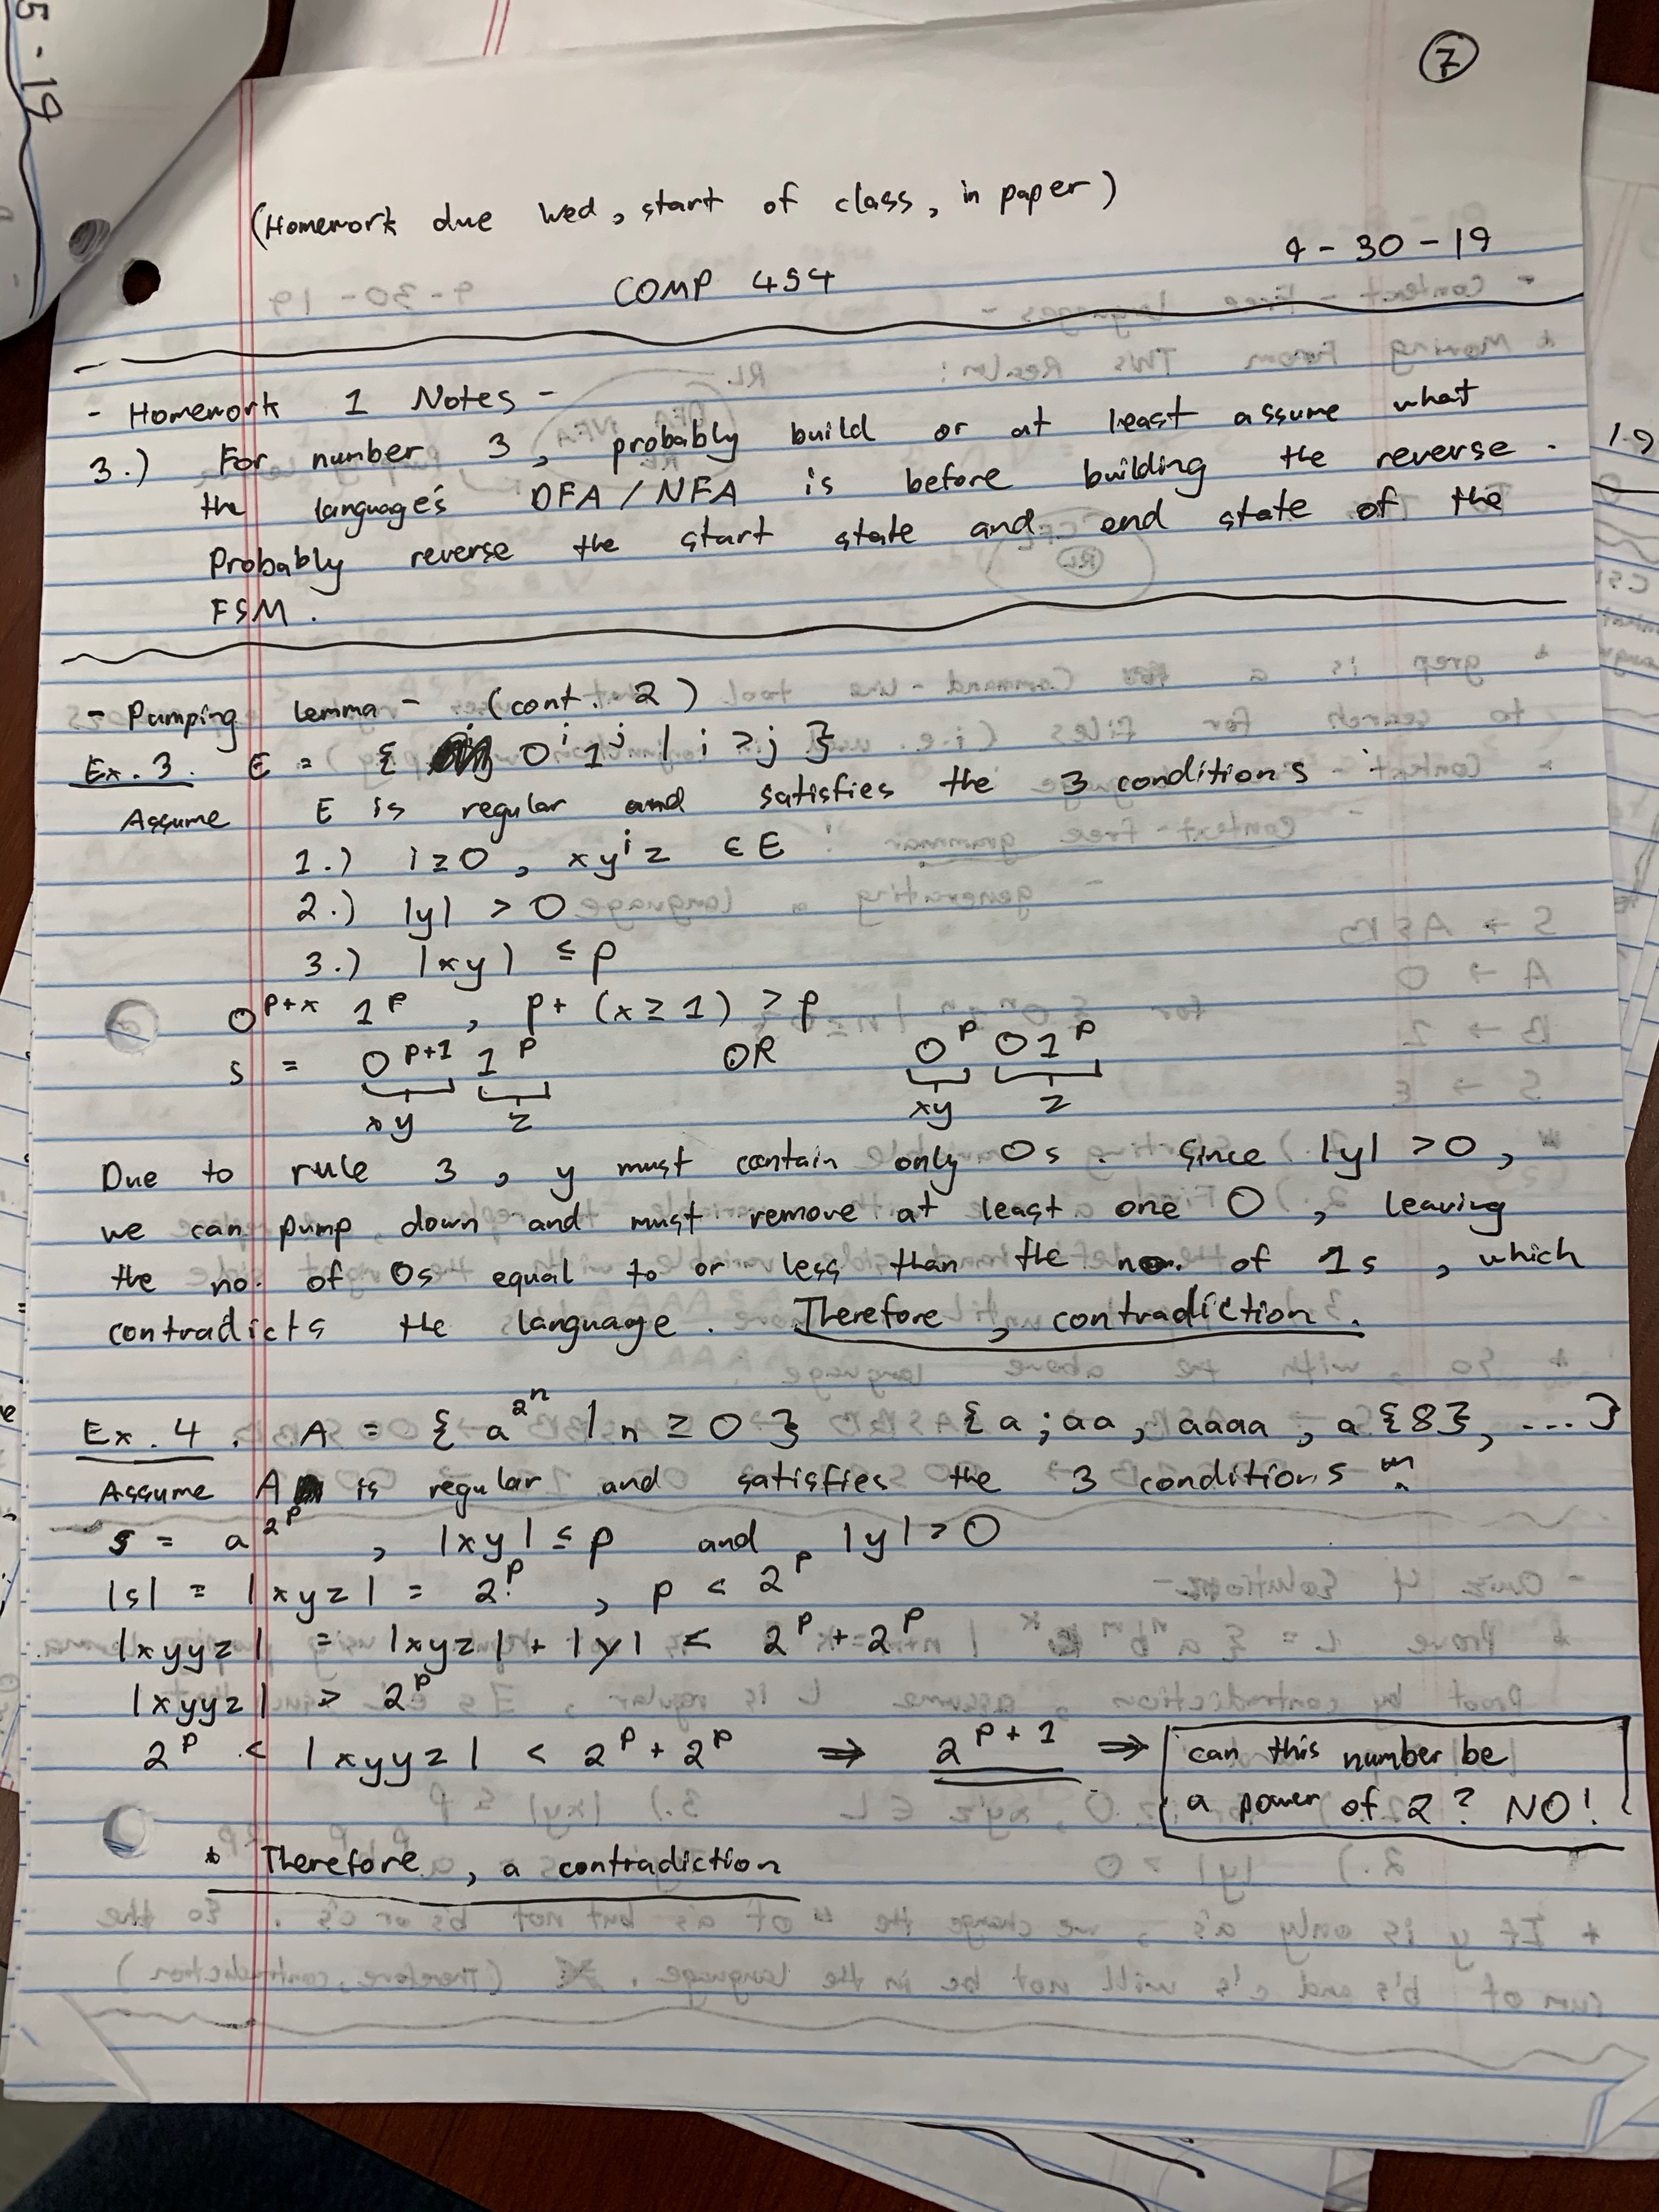 7
(Homework due Wed, start of class, in paper)
9-30-19
COMP 454
- Homework 1 Notes -
3.) For number 3, probably build or at least assume what
the language's DFA/NFA is before building the reverse.
Probably reverse the start state and end state of the
FSM.
- Pumping lemma - (cont. 2)
Ex. 3. E = { 0^i 1^j | i > j }
Assume E is regular and satisfies the 3 conditions :
1.) i ≥ 0, xy^i z ∈ E
2.) |y| > 0
3.) |xy| ≤ p
0^{p+x} 1^p, p + (x ≥ 1) > p
s = 0^{p+1} 1^p OR 0^p 0 1^p
xy z xy z
Due to rule 3, y must contain only 0s. Since |y| > 0,
we can pump down and must remove at least one 0, leaving
the no. of 0s equal to or less than the no. of 1s, which
contradicts the language. Therefore, contradiction.
Ex. 4. A = { a^{2^n} | n ≥ 0 } { a; aa, aaaa, a{8}, ... }
Assume A is regular and satisfies the 3 conditions
s = a^{2^p}, |xy| ≤ p and |y| > 0
|s| = |xyz| = 2^p, p < 2^p
|xyyz| = |xyz| + |y| < 2^p + 2^p
|xyyz| > 2^p
2^p < |xyyz| < 2^p + 2^p ⇒ 2^{p+1} ⇒ can this number be
a power of 2? NO!
* Therefore, a contradiction
5-19
19